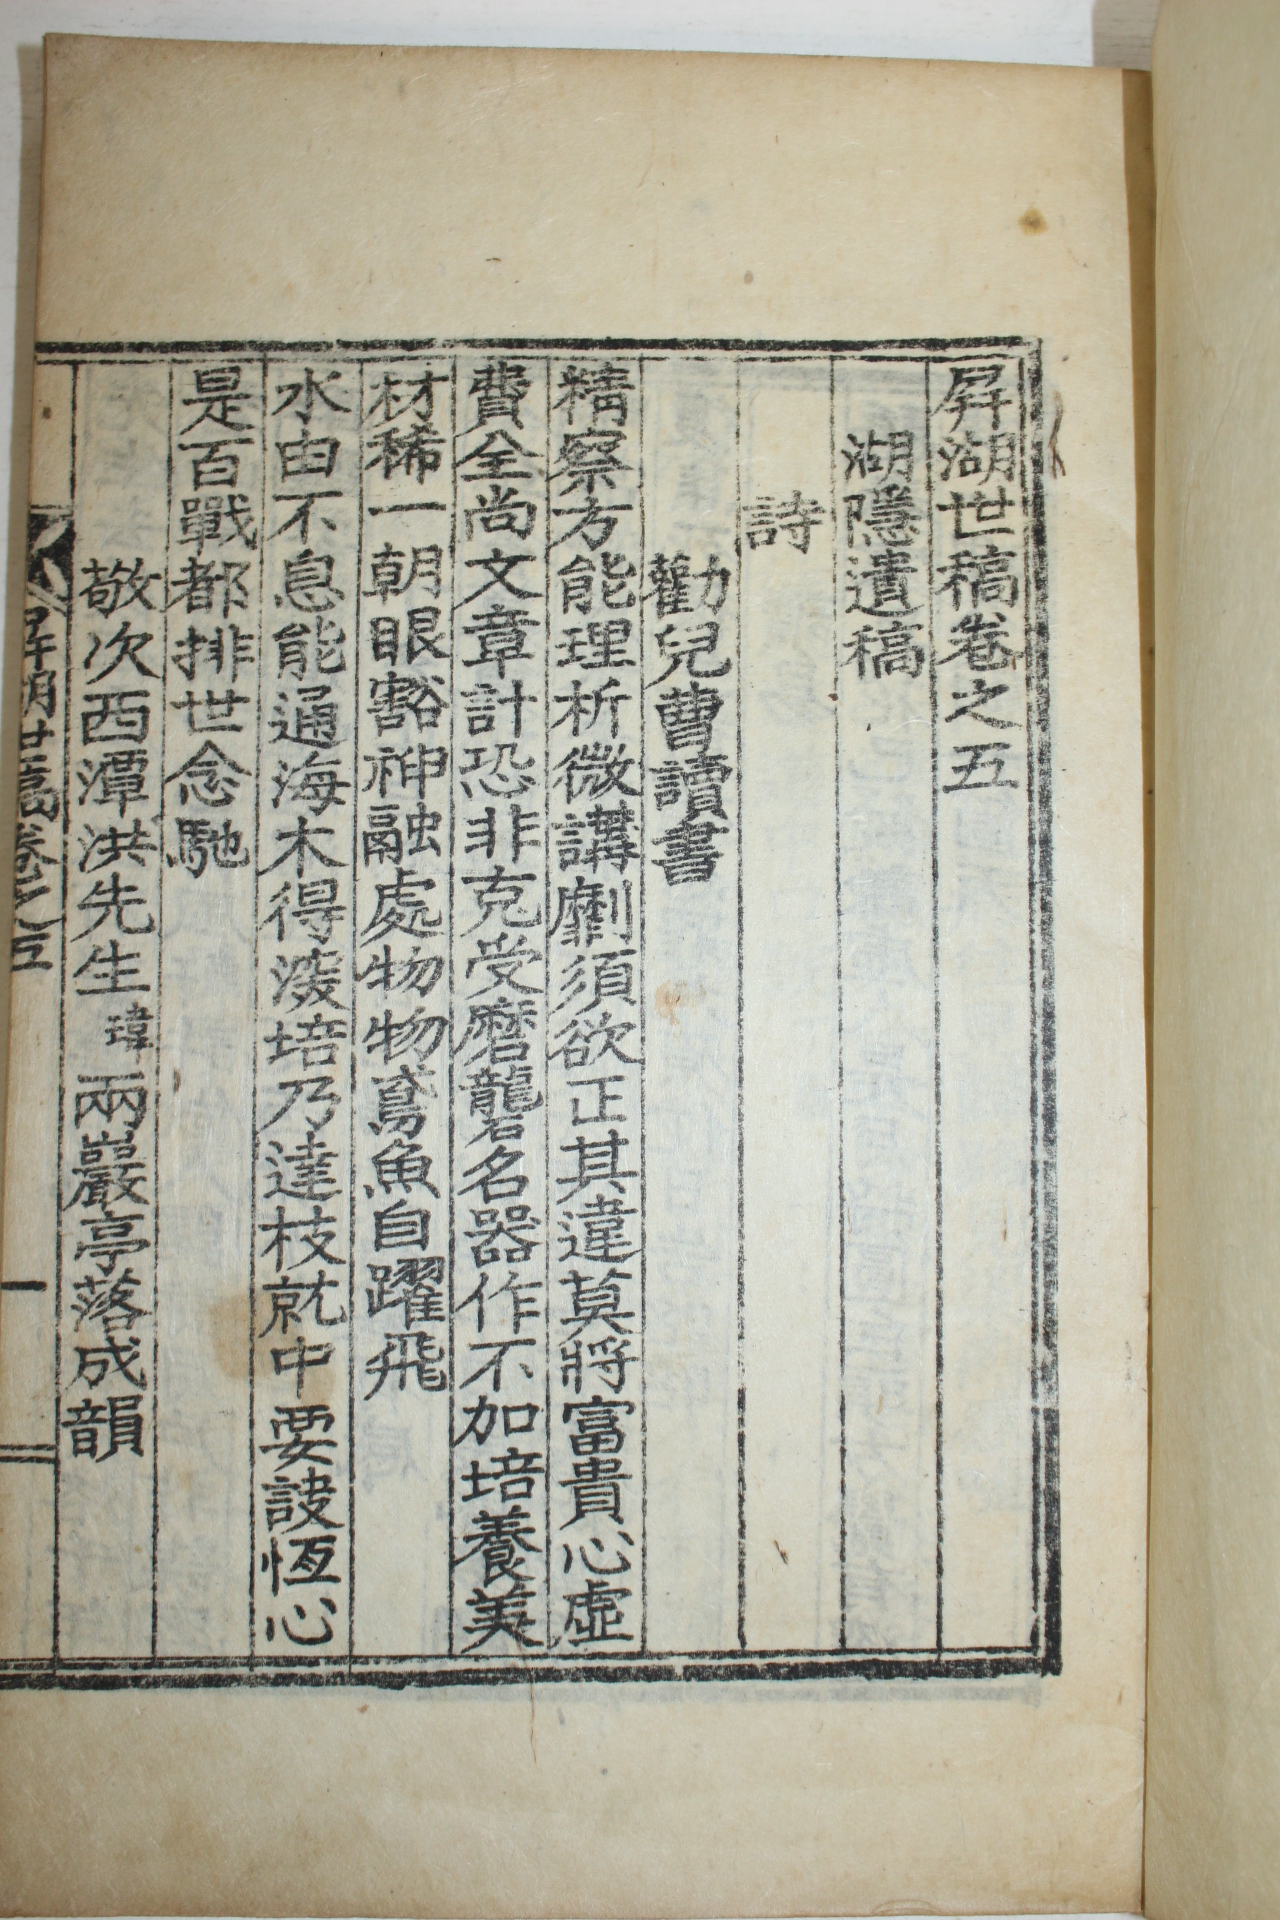 屛湖世稿卷之五
湖隱遺稿
詩
勸兒曹讀書
精察方能理析微講劘須欲正其違莫將富貴心虛
費全尚文章計恐非克受磨礱名器作不加培養美
材稀一朝眼豁神融處物物鳶魚自躍飛
水由不息能通海木得深培乃達枝就中要諼恆心
是百戰都排世念馳
敬次西潭洪先生瑋兩巖亭落成韻
屛湖世稿卷之五
一